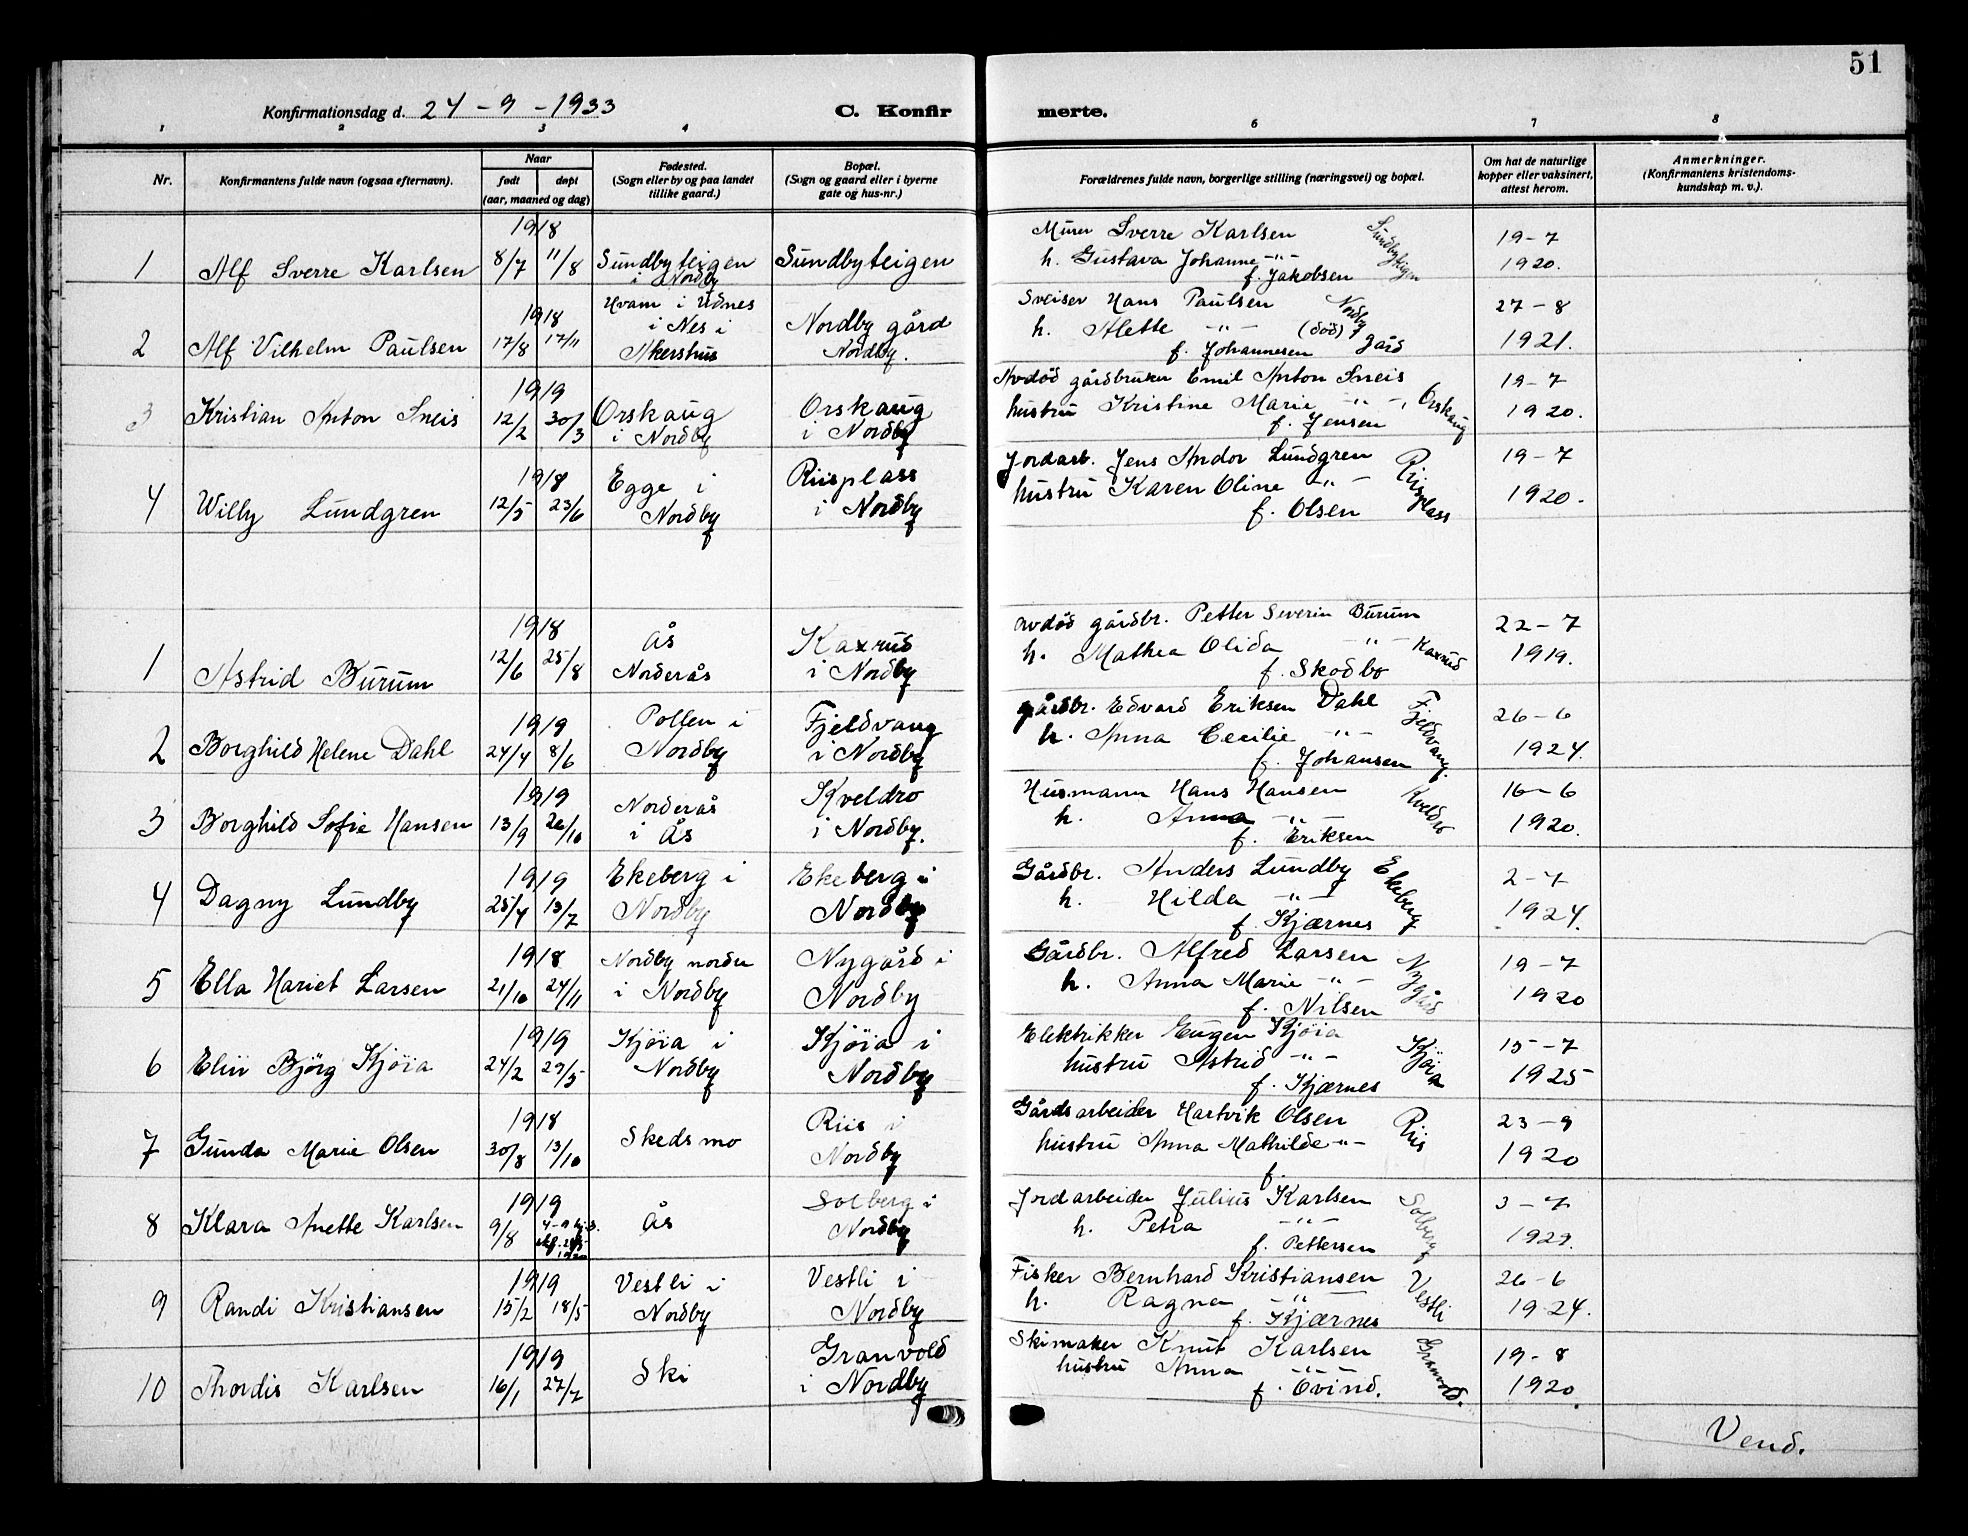 51
Konfirmationsdag d. 24 - 9 - 1933
C. Konfir merte.
1 2 3 4 5 6 7 8
Nr.
Konfirmantens fulde navn (ogsaa efternavn).
Naar
født døpt
(aar, maaned og dag)
Fødested.
(Sogn eller by og paa landet
tillike gaard.)
Bopæl.
(Sogn og gaard eller i byerne
gate og hus-nr.)
Forældrenes fulde navn, borgerlige stilling (næringsvei) og bopæl.
Om hat de naturlige
kopper eller vaksinert,
attest herom.
Anmerkninger.
(Konfirmantens kristendoms-
kundskap m. v.).
1 Alf Sverre Karlsen
1918
8/7 11/8
Sundbyteigen
i Nordby
Sundbyteigen
Murer Sverre Karlsen
h. Gustava Johanne -"-
f. Jakobsen
Sundbyteigen
19-7
1920.
2 Alf Vilhelm Paulsen
1918
17/8 17/11
Hvam i Udnes
i Nes i
Akershus
Nordby gård
Nordby.
Sveiser Hans Paulsen
h. Alette -"- (død)
f. Johannesen
Nordby
gård
27-8
1921.
3 Kristian Anton Sneis
1919
12/2 30/3
Orskaug
i Nordby
Orskaug
i Nordby
Avdød gårdbruker Emil Anton Sneis
hustru Kristine Marie -"-,
f. Jensen
Orskaug
19-7
1920.
4 Willy Lundgren
1918
12/5 23/6
Egge i
Nordby
Riisplass
i Nordby
Jordarb. Jens Andor Lundgren
hustru Karen Oline -"-
f. Olsen
Riisplass
19-7
1920.
1 Astrid Burum
1918
12/6 25/8
Ås
Norderås
Kaxrud
i Nordby
Avdød gårdbr. Petter Severin Burum
h. Mathea Olida -"-
f. Skodbo
Kaxrud
22-7
1919.
2 Borghild Helene Dahl
1919
24/4 8/6
Pollen i
Nordby
Fjeldvang
i Nordby
gårdbr. Edvard Eriksen Dahl
h. Anna Cecilie -"-
f. Johansen
Fjeldvang.
26-6
1924.
3 Borghild Sofie Hansen
1919
13/9 26/10
Norderås
i Ås
Kveldro
i Nordby.
Husmann Hans Hansen
h. Anna -"-
f. Eriksen
Kveldro
16-6
1920.
4 Dagny Lundby
1919
25/4 13/7
Ekeberg i
Nordby
Ekeberg i
Nordby
Gårdbr. Anders Lundby
h. Hilda -"-
f. Kjærnes
Ekeberg
2-7
1924.
5 Ella Hariet Larsen
1918
21/10 24/11
Nordby nordre
i Nordby
Nygård i
Nordby
Gårdbr. Alfred Larsen
h. Anna Marie -"-
f. Nilsen
Nygård
19-7
1920
6 Elin Bjørg Kjöia
1919
24/2 29/5
Kjöia i
Nordby
Kjöia i
Nordby
Elektrikker Eugen Kjöia
hustru Astrid -"-
f. Kjærnes
Kjöia
15-7
1925
7 Gunda Marie Olsen
1918
30/8 13/10
Skedsmo
Riis i
Nordby
Gårdsarbeider Hartvik Olsen
hustru Anna Mathilde -"-
f.
Riis
23-9
1920
8 Klara Anette Karlsen
1919
9/8
Ås
Solberg i
Nordby
Jordarbeider Julius Karlsen
h. Petra -"-
f. Pettersen
Solberg
3-7
1929.
9 Randi Kristiansen
1919
15/2 18/5
Vestli i
Nordby
Vestli i
Nordby
Fisker Bernhard Kristiansen
h. Ragna -"-
f. Kjærnes
Vestli
26-6
1924.
10 Thordis Karlsen
1919
16/1 27/7
Ski
Granvold
i Nordby
Skimaker Knut Karlsen
hustru Anna -"-
f. Övind.
Granvold.
19-8
1920.
Vend.